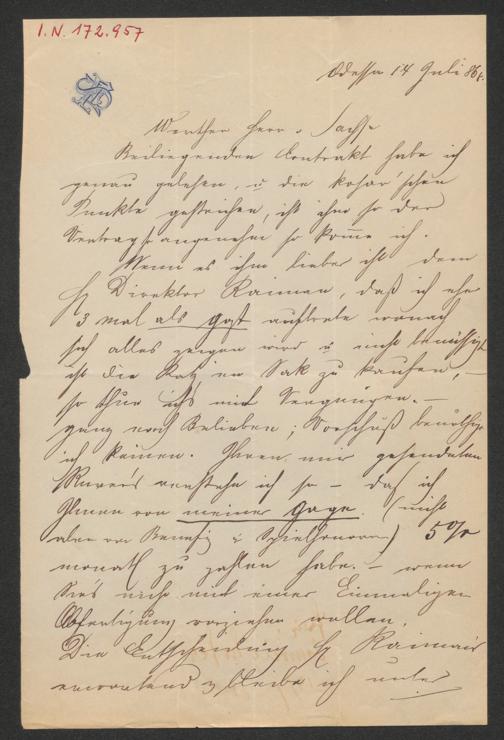 I.N. 172.957
Odessa 14 Juli 86
Werther Herr v Sachse
Beiliegenden Contrakt habe ich
genau gelesen, u die
Punkte gestrichen, ist ihm so der
Vertrag angenehm so kome ich.
Wenn es ihm lieber ist dem
H Direktor Raiman, daß ich eher
3 mal als Gast auftrete wonach
sich alles zeigen wird u nicht
ist die Katz im Sak zu kaufen, –
so thue ich's mit Vergnügen. –
ganz nach Belieben; Vorschuß benöthige
ich keinen. Ihren mir gesendeten
Revers verstehe ich so – daß ich
Ihnen von meiner Gage (nicht
aber von Benefiz u Spielhonorar) 5%
monatl zu zahlen habe. – wenn
Sie's nicht mit einer Einmaligen
Abfertigung vorziehen wollen.
Die Entscheidung H Raiman's
erwartend bleibe ich unter